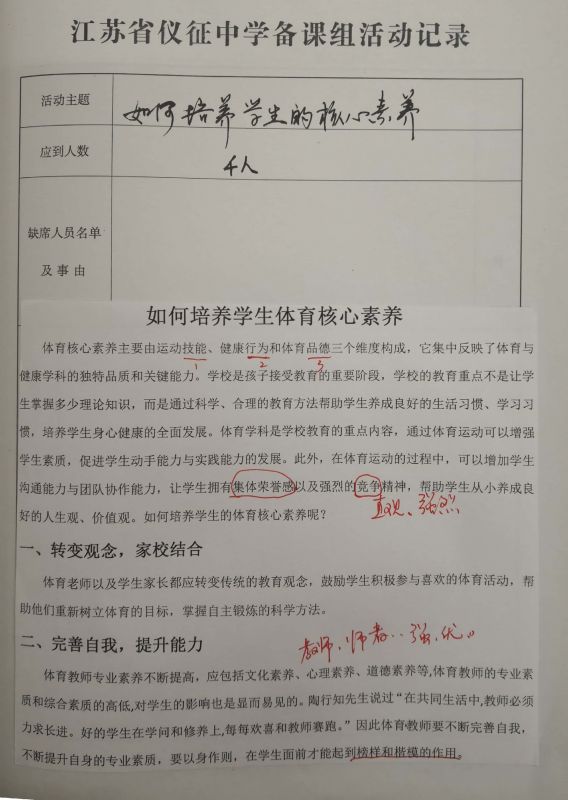 江苏省仪征中学备课组活动记录
活动主题
如何培养学生的核心素养
应到人数
4人
缺席人员名单
及事由
如何培养学生体育核心素养
体育核心素养主要由运动技能、健康行为和体育品德三个维度构成，它集中反映了体育与
1 2 3
健康学科的独特品质和关键能力。学校是孩子接受教育的重要阶段，学校的教育重点不是让学
生掌握多少理论知识，而是通过科学、合理的教育方法帮助学生养成良好的生活习惯、学习习
惯，培养学生身心健康的全面发展。体育学科是学校教育的重点内容，通过体育运动可以增强
学生素质，促进学生动手能力与实践能力的发展。此外，在体育运动的过程中，可以增加学生
沟通能力与团队协作能力，让学生拥有集体荣誉感以及强烈的竞争精神，帮助学生从小养成良
好的人生观、价值观。如何培养学生的体育核心素养呢？
直观、强烈
一、转变观念，家校结合
体育老师以及学生家长都应转变传统的教育观念，鼓励学生积极参与喜欢的体育活动，帮
助他们重新树立体育的目标，掌握自主锻炼的科学方法。
二、完善自我，提升能力
教师，师者、强、优
体育教师专业素养不断提高，应包括文化素养、心理素养、道德素养等,体育教师的专业素
质和综合素质的高低,对学生的影响也是显而易见的。陶行知先生说过“在共同生活中,教师必须
力求长进。好的学生在学问和修养上,每每欢喜和教师赛跑。”因此体育教师要不断完善自我，
不断提升自身的专业素质，要以身作则，在学生面前才能起到榜样和楷模的作用。